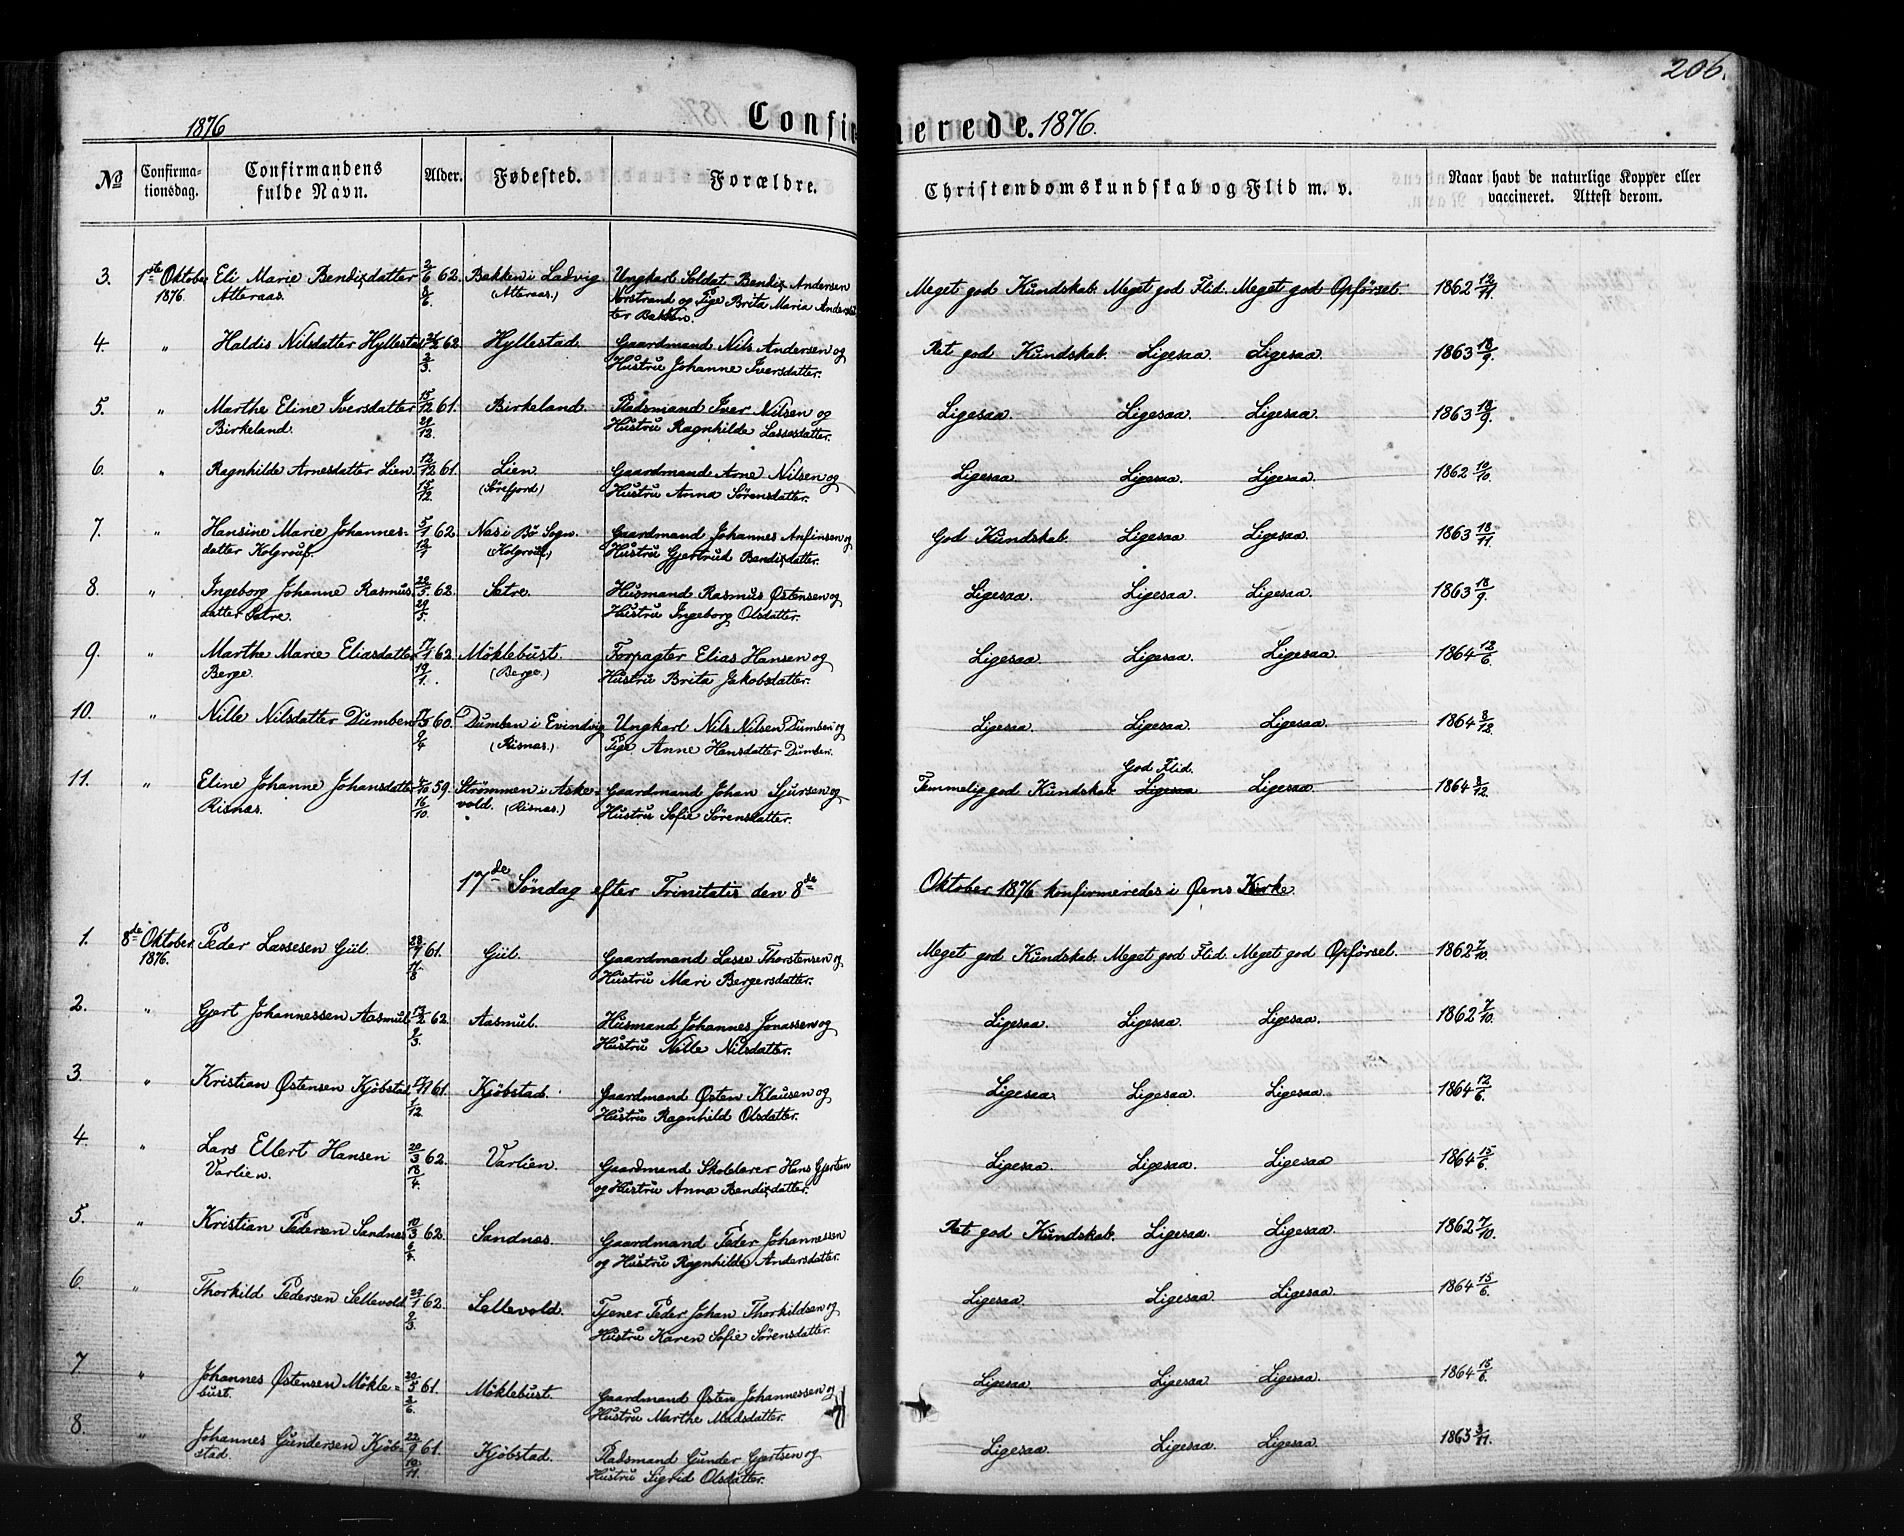 206.
1876
Confirmerede. 1876.
No
Confirmationsdag.
Confirmandens fulde Navn.
Alder.
Fødested.
Forældre.
Christendomskundskab og Flid m. v.
Naar havt de naturlige Kopper eller vaccineret. Attest derom.
3. 1ste Oktober Eli Marie Bendixdatter 2/6 62. Bakken i Ladvig Ungkarl Soldat Bendix Andersen Meget god Kundskab. Meget god Flid. Meget god Opførsel. 1862 12/11.
1876. Atteraas. (Atteraas.) Norstrand og Pige Brita Maria Andersdatter Bakken.
4. " Haldis Nilsdatter Hyllestad 62 Hyllestad. Gaardmand Nils Andersen og Ret god Kundskab. Ligesaa. Ligesaa. 1863 18/9.
2/3. Hustru Johanne Iversdatter.
5. " Marthe Eline Iversdatter 15/12 61. Birkeland. Pladsmand Iver Nilsen og Ligesaa. Ligesaa. Ligesaa. 1863 18/9.
Birkeland. 29/12. Hustru Ragnhilde Lassesdatter.
6. " Ragnhilde Arnesdatter Lien. 12/12 61. Lien. Gaardmand Arne Nilsen og Ligesaa. Ligesaa. Ligesaa. 1862 10/10.
15/12. (Sørefjord) Hustru Anna Sørensdatter.
7. " Hansine Marie Johannes- 5/1 62. Nas i Bø Sogn. Gaardmand Johannes Anfinsen og God Kundskab. Ligesaa. Ligesaa. 1863 18/11.
datter Kolgrouf. 12/1 (Kolgrouf) Hustru Gjertrud Bendixdatter.
8. " Ingeborg Johanne Rasmus- 22/5. 62. Sætre. Husmand Rasmus Østensen og Ligesaa. Ligesaa. Ligesaa. 1863 18/9.
datter Sætre. 29/5. Hustru Ingeborg Olsdatter.
9. " Marthe Marie Eliasdatter 17/1 62. Møklebust. Forpagter Elias Hansen og Ligesaa. Ligesaa. Ligesaa. 1864 12/6.
Berge. 19/1. (Berge.) Hustru Brita Jakobsdatter.
10. " Nille Nilsdatter Dumben 17/3 60. Dumben i Evindvig Ungkarl Nils Nilsen Dumben og Ligesaa. Ligesaa. Ligesaa. 1864 8/12.
9/4 (Risnes.) Pige Anne Hansdatter Dumben.
11. " Eline Johanne Johansdatter 4/10 59. Strømmen i Aske- Gaardmand Johan Sjursen og Temmelig god Kundskab. God Flid. Ligesaa Ligesaa. 1864 8/12.
Risnes. 16/10. vold. (Risnes.) Hustru Sofie Sørensdatter.
17de Søndag efter Trinitatis den 8de Oktober 1876 konfirmeredes i Øens Kirke.
1. 8de Oktober Peder Lassesen Gül. 23/7 61. Gül. Gaardmand Lasse Thorstensen og Meget god Kundskab. Meget god Flid. Meget god Opførsel. 1862 7/10.
1876. Hustru Mari Bergersdatter.
2. " Gjert Johannessen Aasmul 62. Aasmul. Husmand Johannes Jonassen og Ligesaa. Ligesaa. Ligesaa. 1862 7/10.
2/3. Hustru Nille Nilsdatter.
3. " Kristian Østensen Kjøbstad 61. Kjøbstad. Gaardmand Østen Klausen og Ligesaa. Ligesaa. Ligesaa. 1864 12/6.
1/12. Hustru Ragnhild Olsdatter.
4. " Lars Ellert Hansen 20/3 62. Varlien. Gaardmand Skolelærer Hans Gjertsen Ligesaa. Ligesaa. Ligesaa 1864 15/6.
Varlien. 18/4. og Hustru Anna Bendixdatter.
5. " Kristian Pedersen Sandnes 10/3 62. Sandnes. Gaardmand Peder Johannessen Ret god Kundskab. Ligesaa. Ligesaa. 1862 7/10.
6/4. og Hustru Ragnhilde Andersdatter.
6. " Thorkild Pedersen Sellevold 22/1 62. Sellevold. Tjener Peder Johan Thorkildsen og Ligesaa. Ligesaa. Ligesaa. 1864 15/6.
2/3. Hustru Karen Sofie Sørensdatter.
7 " Johannes Østensen Møkle- 20/5 61. Møklebust. Gaardmand Østen Johannessen og Ligesaa. Ligesaa. Ligesaa. 1864 15/6.
bust. 2/6. Hustru Marthe Madsdatter.
8. " Johannes Gundersen Kjøb- 22/9 61. Kjøbstad. Pladsmand Gunder Gjertsen og Ligesaa. Ligesaa. Ligesaa. 1863 3/11.
stad. 10/11. Hustru Sigrid Olsdatter.